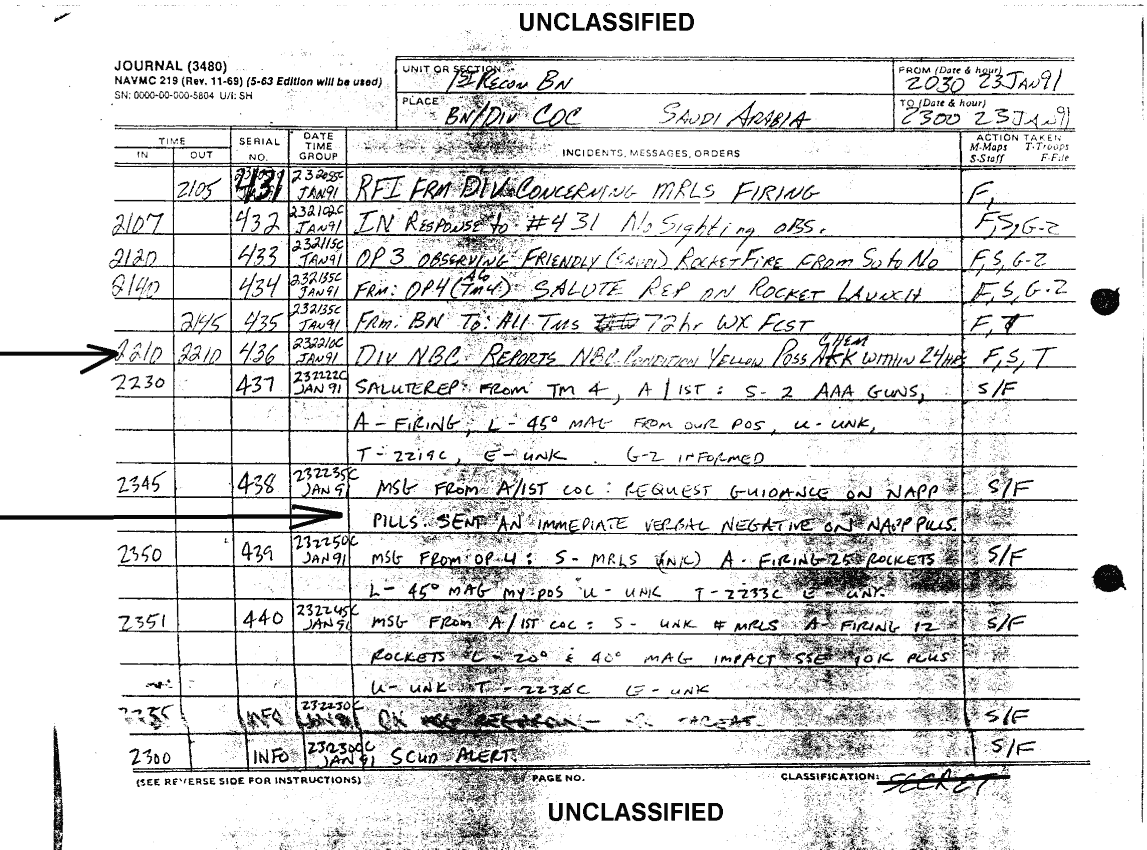 UNCLASSIFIED
JOURNAL (3480)
NAVMC 219 (Rev. 11-69) (5-63 Edition will be used)
SN: 0000-00-000-5804 U/I: SH
UNIT OR SECTION
1st Recon Bn
FROM (Date & hour)
2030 23 Jan 91
PLACE
Bn/Div COC Saudi Arabia
TO (Date & hour)
2300 23 Jan 91
TIME
IN OUT
SERIAL NO.
DATE TIME GROUP
INCIDENTS, MESSAGES, ORDERS
ACTION TAKEN
M-Maps T-Troops
S-Staff F-File
2105 431 JAN91 RFI FRM DIV CONCERNING MRLS FIRING F,
2107 432 232102C JAN91 IN RESPONSE to #431 No Sighting OBS. F,S,G-2
2120 433 232115C JAN91 OP 3 OBSERVING FRIENDLY (SAUDI) ROCKET FIRE FROM So to No F,S,G-2
2140 434 232135C JAN91 FRM: OP4 (Tm4) SALUTE REP ON ROCKET LAUNCH F,S,G-2
2145 435 232135C JAN91 FRM: BN TO: All Tms 72hr WX FCST F,T
2210 2210 436 232210C JAN91 DIV NBC REPORTS NBC CONDITION YELLOW POSS CHEM ATK WITHIN 24 HRS F,S,T
2230 437 232222C JAN 91 SALUTEREP: FROM TM 4, A/1ST: S- 2 AAA GUNS, S/F
A - FIRING, L - 45° MAG FROM OUR POS, U - UNK,
T - 2219C, E - UNK. G-2 INFORMED
2345 438 232235C JAN 91 MSG FROM A/1ST COC: REQUEST GUIDANCE ON NAPP S/F
PILLS. SENT AN IMMEDIATE VERBAL NEGATIVE ON NAPP PILLS.
2350 439 232250C JAN 91 MSG FROM OP-4: S- MRLS (UNK) A- FIRING 25 ROCKETS S/F
L- 45° MAG MY POS U- UNK T- 2233C E- UNK.
2351 440 232245C JAN 91 MSG FROM A/1ST COC: S- UNK # MRLS A- FIRING 12 S/F
ROCKETS L- 20° & 40° MAG IMPACT SSE 10K PLUS
U- UNK T - E- UNK
INFO 232230C JAN 91 S/F
2300 INFO 232300C JAN 91 SCUD ALERT. S/F
(SEE REVERSE SIDE FOR INSTRUCTIONS) PAGE NO. CLASSIFICATION: SECRET
UNCLASSIFIED